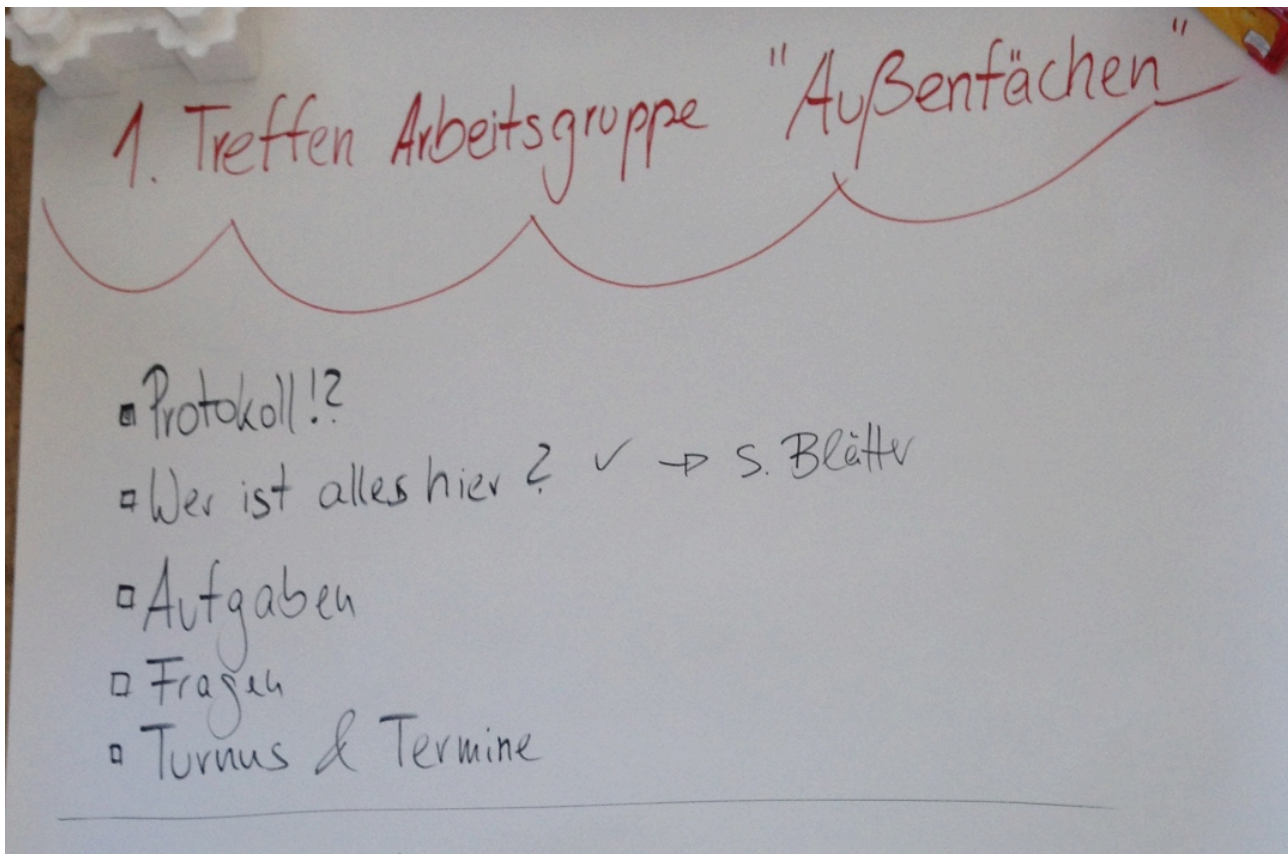 1. Treffen Arbeitsgruppe "Außenfächen"
Protokoll!?
Wer ist alles hier? ✓ → s. Blätter
Aufgaben
Fragen
Turnus & Termine